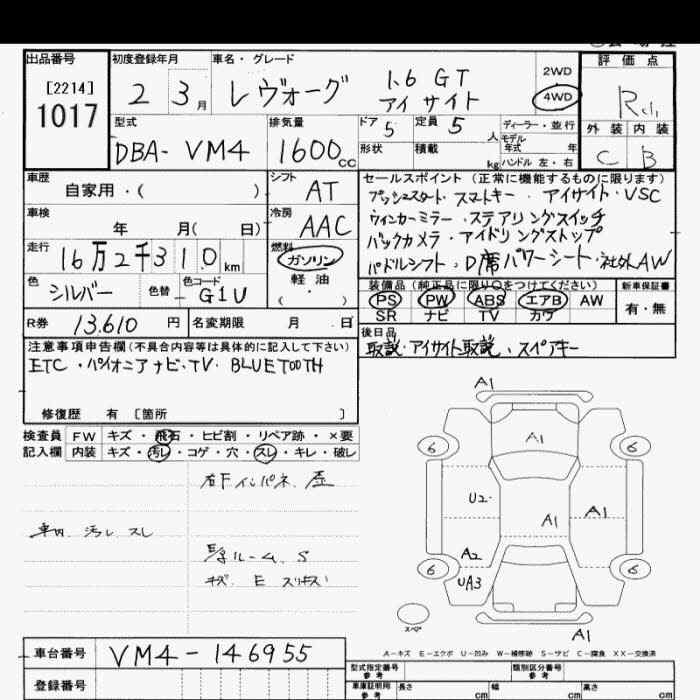 出品番号
[2214]
1017
初度登録年月
2 3月
車名・グレード
レヴォーグ 1.6 GT
アイサイト
2WD
4WD
評価点
R
外装 内装
C B
型式
DBA-VM4
排気量
1600cc
ドア 5
定員 5人
形状
積載 kg
ディーラー・並行
モデル年式 年
ハンドル 左・右
車歴
自家用・( )
シフト
AT
車検
年 月( 日)
冷房
AAC
走行
16万2千310km
燃料
ガソリン
軽油
( )
色
シルバー
色替
色コード
G1U
R券 13,610円
名変期限 月 日
セールスポイント(正常に機能するものに限ります)
プッシュスタート・スマートキー・アイサイト・VSC
ウィンカーミラー・ステアリングスイッチ
バックカメラ・アイドリングストップ
パドルシフト・D席パワーシート・社外AW
装備品(純正品に限り○をつけてください)
PS PW ABS エアB AW
SR ナビ TV カワ
新車保証書
有・無
後日品
取説・アイサイト取説・スペアキー
注意事項申告欄(不具合内容等は具体的に記入して下さい)
ETC・パイオニアナビ・TV・BLUETOOTH
修復歴 有 [箇所 ]
検査員記入欄
FW キズ・飛石・ヒビ割・リペア跡・×要
内装 キズ・汚レ・コゲ・穴・スレ・キレ・破レ
右Fインパネ、歪
車内 汚レ スレ
ルーム、S
キズ E スリキズ
A1
A1
6 6
U2
A1 A1
A2
6 6
UA3
スペア
A1
A-キズ E-エクボ U-凹み W-補修跡 S-サビ C-腐食 XX-交換済
車台番号 VM4-146955
登録番号
型式指定番号
参考
類別区分番号
参考
車庫証明用
参考
長さ cm
幅 cm
高さ cm